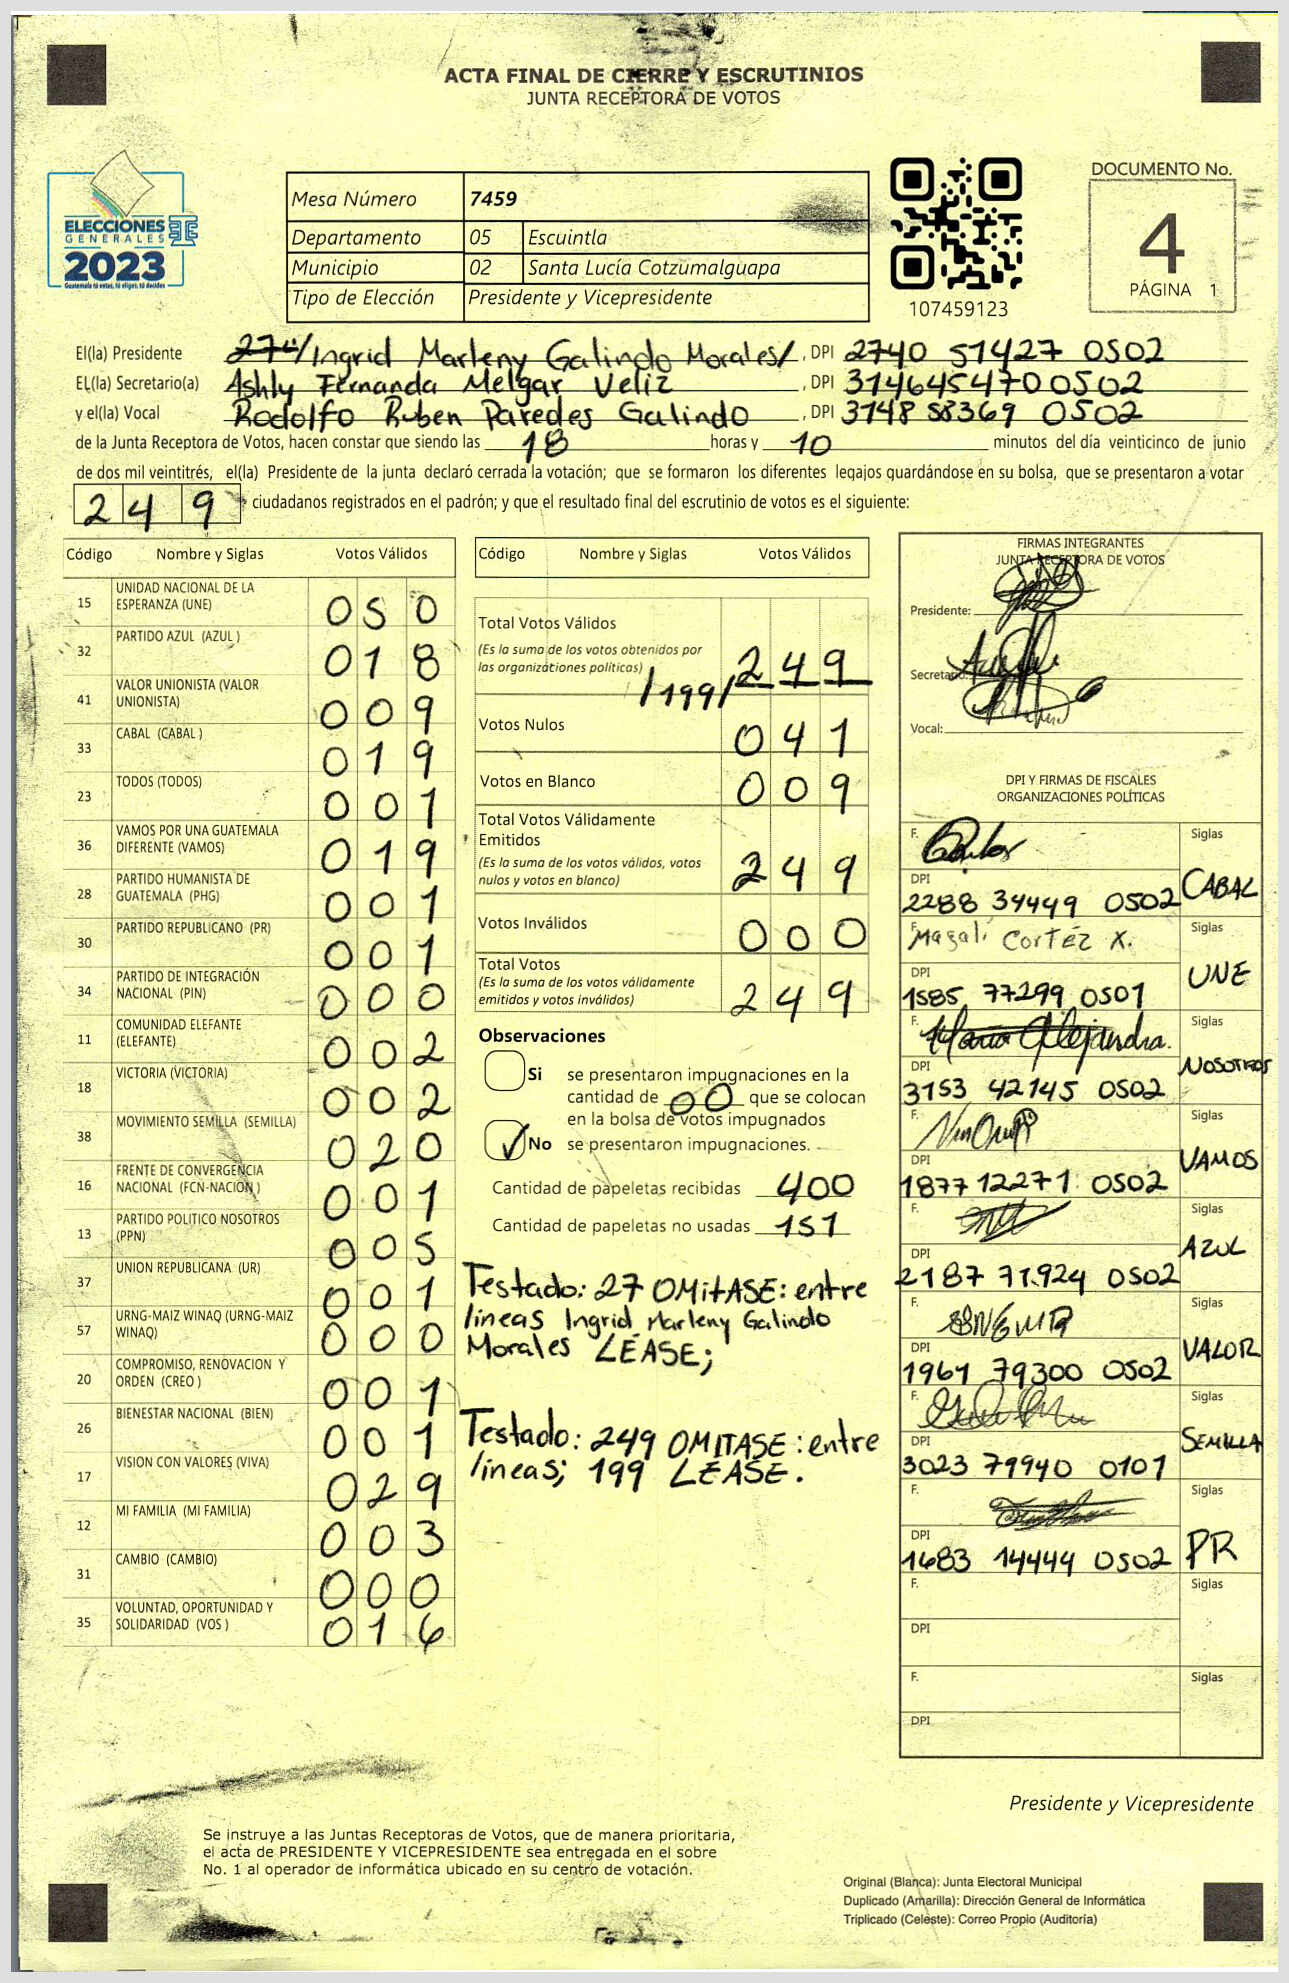 ACTA FINAL DE CIERRE Y ESCRUTINIOS
JUNTA RECEPTORA DE VOTOS
ELECCIONES
GENERALES
2023
Guatemala tú votas, tú eliges, tú decides
Mesa Número 7459
Departamento 05 Escuintla
Municipio 02 Santa Lucía Cotzumalguapa
Tipo de Elección Presidente y Vicepresidente
107459123
DOCUMENTO No.
4
PÁGINA 1
El(la) Presidente /Ingrid Marleny Galindo Morales/, DPI 2740 51427 0502
EL(la) Secretario(a) Ashly Fernanda Melgar Veliz, DPI 3146454700502
y el(la) Vocal Rodolfo Ruben Paredes Galindo, DPI 3148 58369 0502
de la Junta Receptora de Votos, hacen constar que siendo las 18 horas y 10 minutos del día veinticinco de junio
de dos mil veintitrés, el(la) Presidente de la junta declaró cerrada la votación; que se formaron los diferentes legajos guardándose en su bolsa, que se presentaron a votar
249 ciudadanos registrados en el padrón; y que el resultado final del escrutinio de votos es el siguiente:
Código Nombre y Siglas Votos Válidos
15 UNIDAD NACIONAL DE LA ESPERANZA (UNE) 050
32 PARTIDO AZUL (AZUL ) 018
41 VALOR UNIONISTA (VALOR UNIONISTA) 009
33 CABAL (CABAL ) 019
23 TODOS (TODOS) 001
36 VAMOS POR UNA GUATEMALA DIFERENTE (VAMOS) 019
28 PARTIDO HUMANISTA DE GUATEMALA (PHG) 001
30 PARTIDO REPUBLICANO (PR) 001
34 PARTIDO DE INTEGRACIÓN NACIONAL (PIN) 000
11 COMUNIDAD ELEFANTE (ELEFANTE) 002
18 VICTORIA (VICTORIA) 002
38 MOVIMIENTO SEMILLA (SEMILLA) 020
16 FRENTE DE CONVERGENCIA NACIONAL (FCN-NACION ) 001
13 PARTIDO POLITICO NOSOTROS (PPN) 005
37 UNION REPUBLICANA (UR) 001
57 URNG-MAIZ WINAQ (URNG-MAIZ WINAQ) 000
20 COMPROMISO, RENOVACION Y ORDEN (CREO ) 001
26 BIENESTAR NACIONAL (BIEN) 001
17 VISION CON VALORES (VIVA) 029
12 MI FAMILIA (MI FAMILIA) 003
31 CAMBIO (CAMBIO) 000
35 VOLUNTAD, OPORTUNIDAD Y SOLIDARIDAD (VOS ) 016
Código Nombre y Siglas Votos Válidos
Total Votos Válidos
(Es la suma de los votos obtenidos por
las organizaciones políticas) /199/ 249
Votos Nulos 041
Votos en Blanco 009
Total Votos Válidamente
Emitidos
(Es la suma de los votos válidos, votos
nulos y votos en blanco) 249
Votos Inválidos 000
Total Votos
(Es la suma de los votos válidamente
emitidos y votos inválidos) 249
Observaciones
Si se presentaron impugnaciones en la
cantidad de 00 que se colocan
en la bolsa de votos impugnados
No se presentaron impugnaciones.
Cantidad de papeletas recibidas 400
Cantidad de papeletas no usadas 151
Testado: 27 OMITASE: entre
líneas Ingrid Marleny Galindo
Morales LEASE;
Testado: 249 OMITASE: entre
líneas; 199 LEASE.
FIRMAS INTEGRANTES
JUNTA RECEPTORA DE VOTOS
Presidente:
Secretario:
Vocal:
DPI Y FIRMAS DE FISCALES
ORGANIZACIONES POLÍTICAS
F. Siglas
DPI CABAL
2288 34449 0502
F. Magalí Cortéz X. Siglas
DPI UNE
1585 77299 0501
F. María Alejandra. Siglas
DPI NOSOTROS
3153 42145 0502
F. Siglas
DPI VAMOS
1877 12271 0502
F. Siglas
DPI AZUL
2187 71924 0502
F. Siglas
DPI VALOR
1961 79300 0502
F. Siglas
DPI SEMILLA
3023 79940 0101
F. Siglas
DPI PR
1683 14444 0502
F. Siglas
DPI
F. Siglas
DPI
Presidente y Vicepresidente
Se instruye a las Juntas Receptoras de Votos, que de manera prioritaria,
el acta de PRESIDENTE Y VICEPRESIDENTE sea entregada en el sobre
No. 1 al operador de informática ubicado en su centro de votación.
Original (Blanca): Junta Electoral Municipal
Duplicado (Amarilla): Dirección General de Informática
Triplicado (Celeste): Correo Propio (Auditoría)